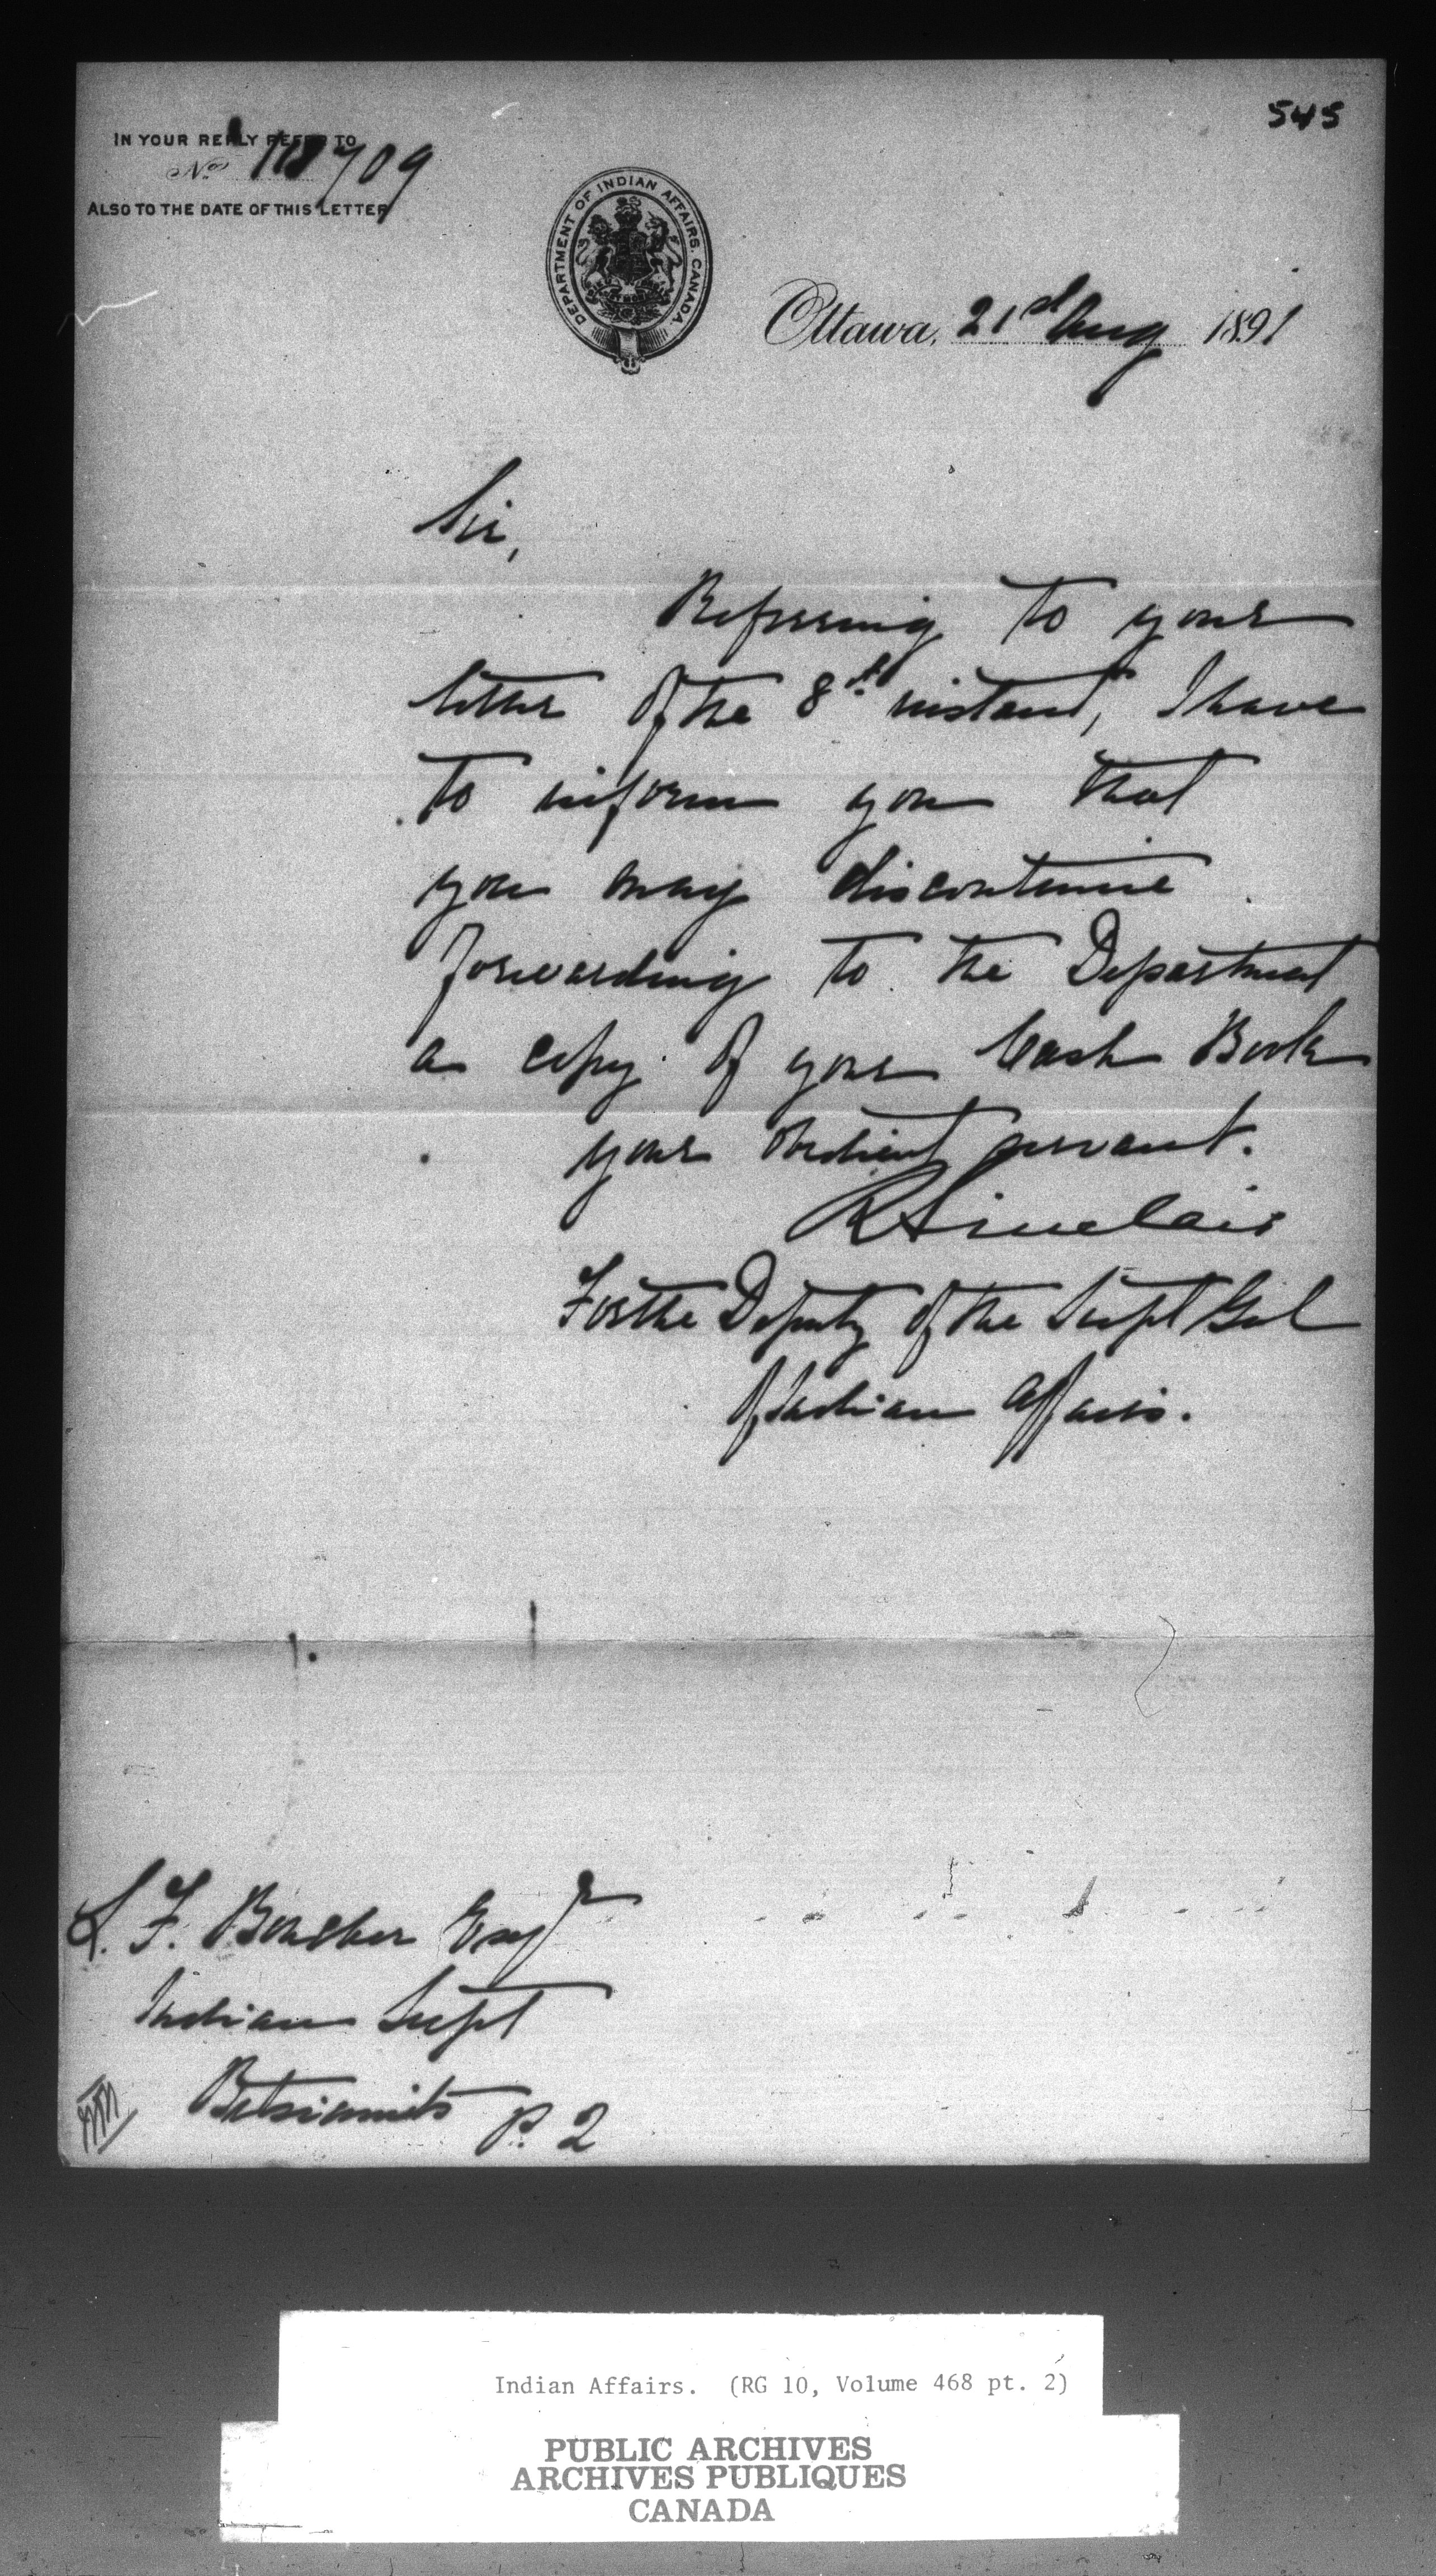 545
IN YOUR REPLY REFER TO
No 118709
ALSO TO THE DATE OF THIS LETTER
DEPARTMENT OF INDIAN AFFAIRS. CANADA.
Ottawa, 21st Aug 1891
Sir,
Referring to your
letter of the 8th instant, I have
to inform you that
you may discontinue
forwarding to the Department
a copy of your Cash Book
your obedient servant.
R Sinclair
For the Deputy of the Supt Genl
of Indian Affairs.
L. F. Boucher Esqr
Indian Supt
Betsiamits P. Q
Indian Affairs. (RG 10, Volume 468 pt. 2)
PUBLIC ARCHIVES
ARCHIVES PUBLIQUES
CANADA